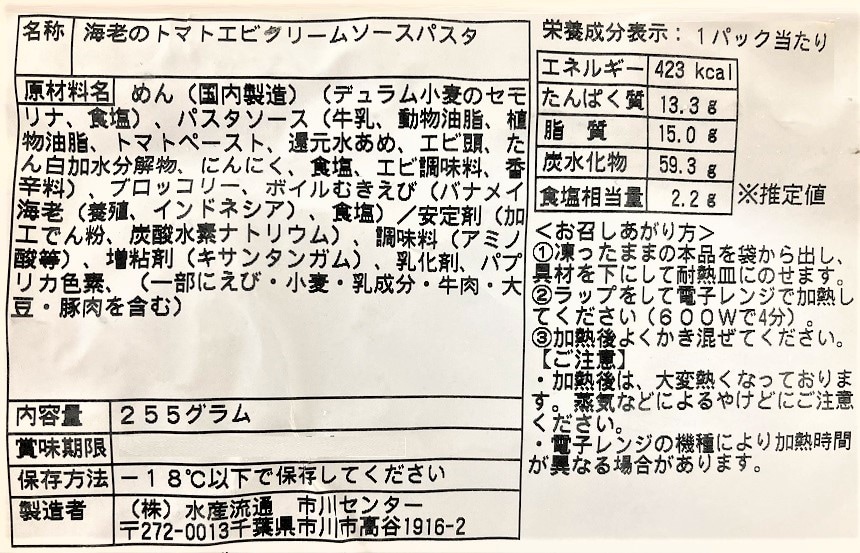 名称 海老のトマトエビクリームソースパスタ
原材料名 めん（国内製造）（デュラム小麦のセモ
リナ、食塩）、パスタソース（牛乳、動物油脂、植
物油脂、トマトペースト、還元水あめ、エビ頭、た
ん白加水分解物、にんにく、食塩、エビ調味料、香
辛料）、ブロッコリー、ボイルむきえび（バナメイ
海老（養殖、インドネシア）、食塩）／安定剤（加
工でん粉、炭酸水素ナトリウム）、調味料（アミノ
酸等）、増粘剤（キサンタンガム）、乳化剤、パプ
リカ色素、（一部にえび・小麦・乳成分・牛肉・大
豆・豚肉を含む）
内容量 ２５５グラム
賞味期限
保存方法 －１８℃以下で保存してください
製造者 （株）水産流通 市川センター
〒272-0013千葉県市川市高谷1916-2
栄養成分表示：１パック当たり
エネルギー 423 kcal
たんぱく質 13.3 g
脂質 15.0 g
炭水化物 59.3 g
食塩相当量 2.2 g ※推定値
＜お召しあがり方＞
①凍ったままの本品を袋から出し、
具材を下にして耐熱皿にのせます。
②ラップをして電子レンジで加熱し
てください（６００Wで4分）。
③加熱後よくかき混ぜてください。
【ご注意】
・加熱後は、大変熱くなっておりま
す。蒸気などによるやけどにご注意
ください。
・電子レンジの機種により加熱時間
が異なる場合があります。